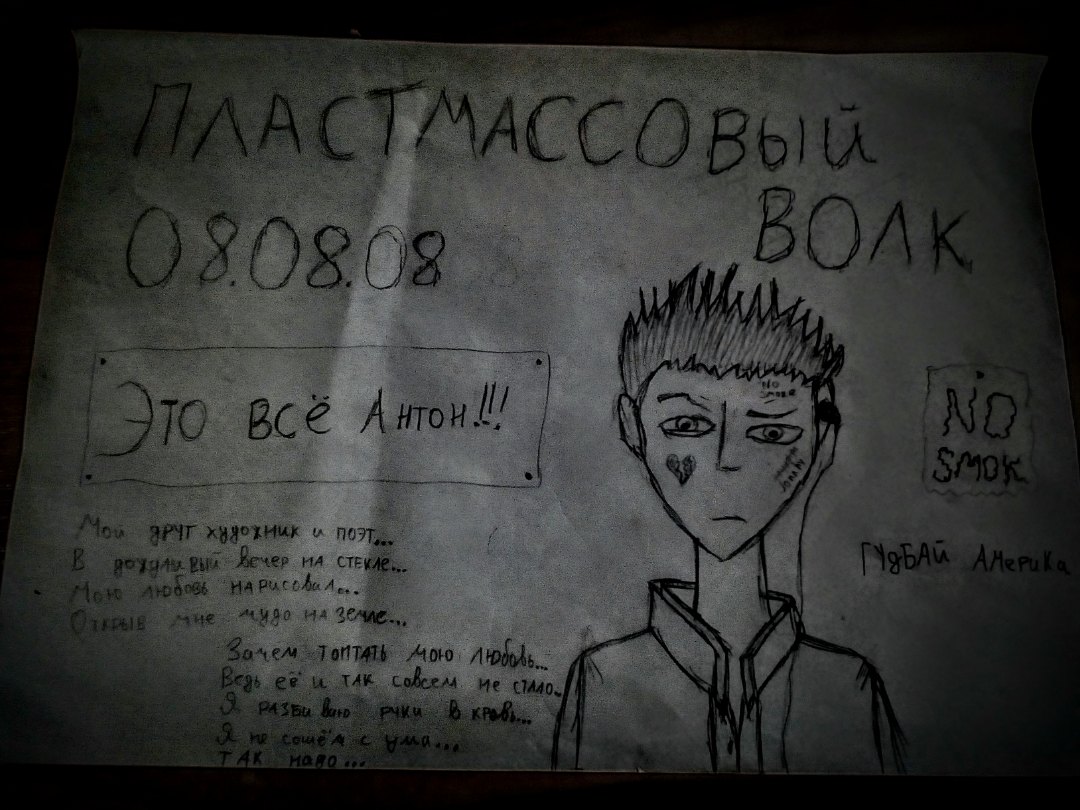 ПЛАСТМАССОВЫЙ
ВОЛК
08.08.08
Это всё Антон!!!
NO
SMOKE
NO
SMOK
ГУДБАЙ АМЕРИКА
Мой друг художник и поэт...
В дождливый вечер на стекле...
Мою любовь нарисовал...
Открыв мне чудо на земле...
Зачем топтать мою любовь...
Ведь её и так совсем не стало..
Я разбиваю руки в кровь...
Я не сошёл с ума...
ТАК надо...